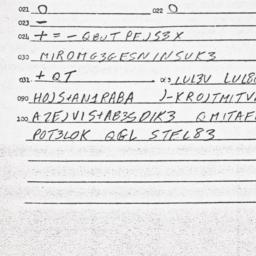 021 0 022 0
023 -
024 + = - QBUT PFJS3X
030 MIROMG3GFSNINSUK3
031 + QT 013 LUL3U LUL8
090 HOJS+AN1PABA )-KROJTMITV
200 A7EJVIS+AB3SDIK3 QMITAF
POT3LOK QGL STFL83